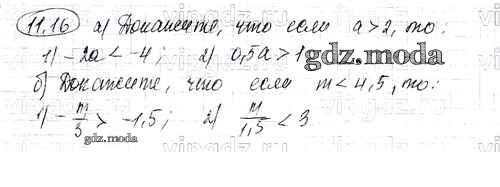 11.16 а) Докажите, что если a > 2, то:
1) -2a < -4; 2) 0,5a > 1
gdz.moda
б) Докажите, что если m < 4,5, то:
1) - m/3 > -1,5; 2) m/1,5 < 3
gdz.moda